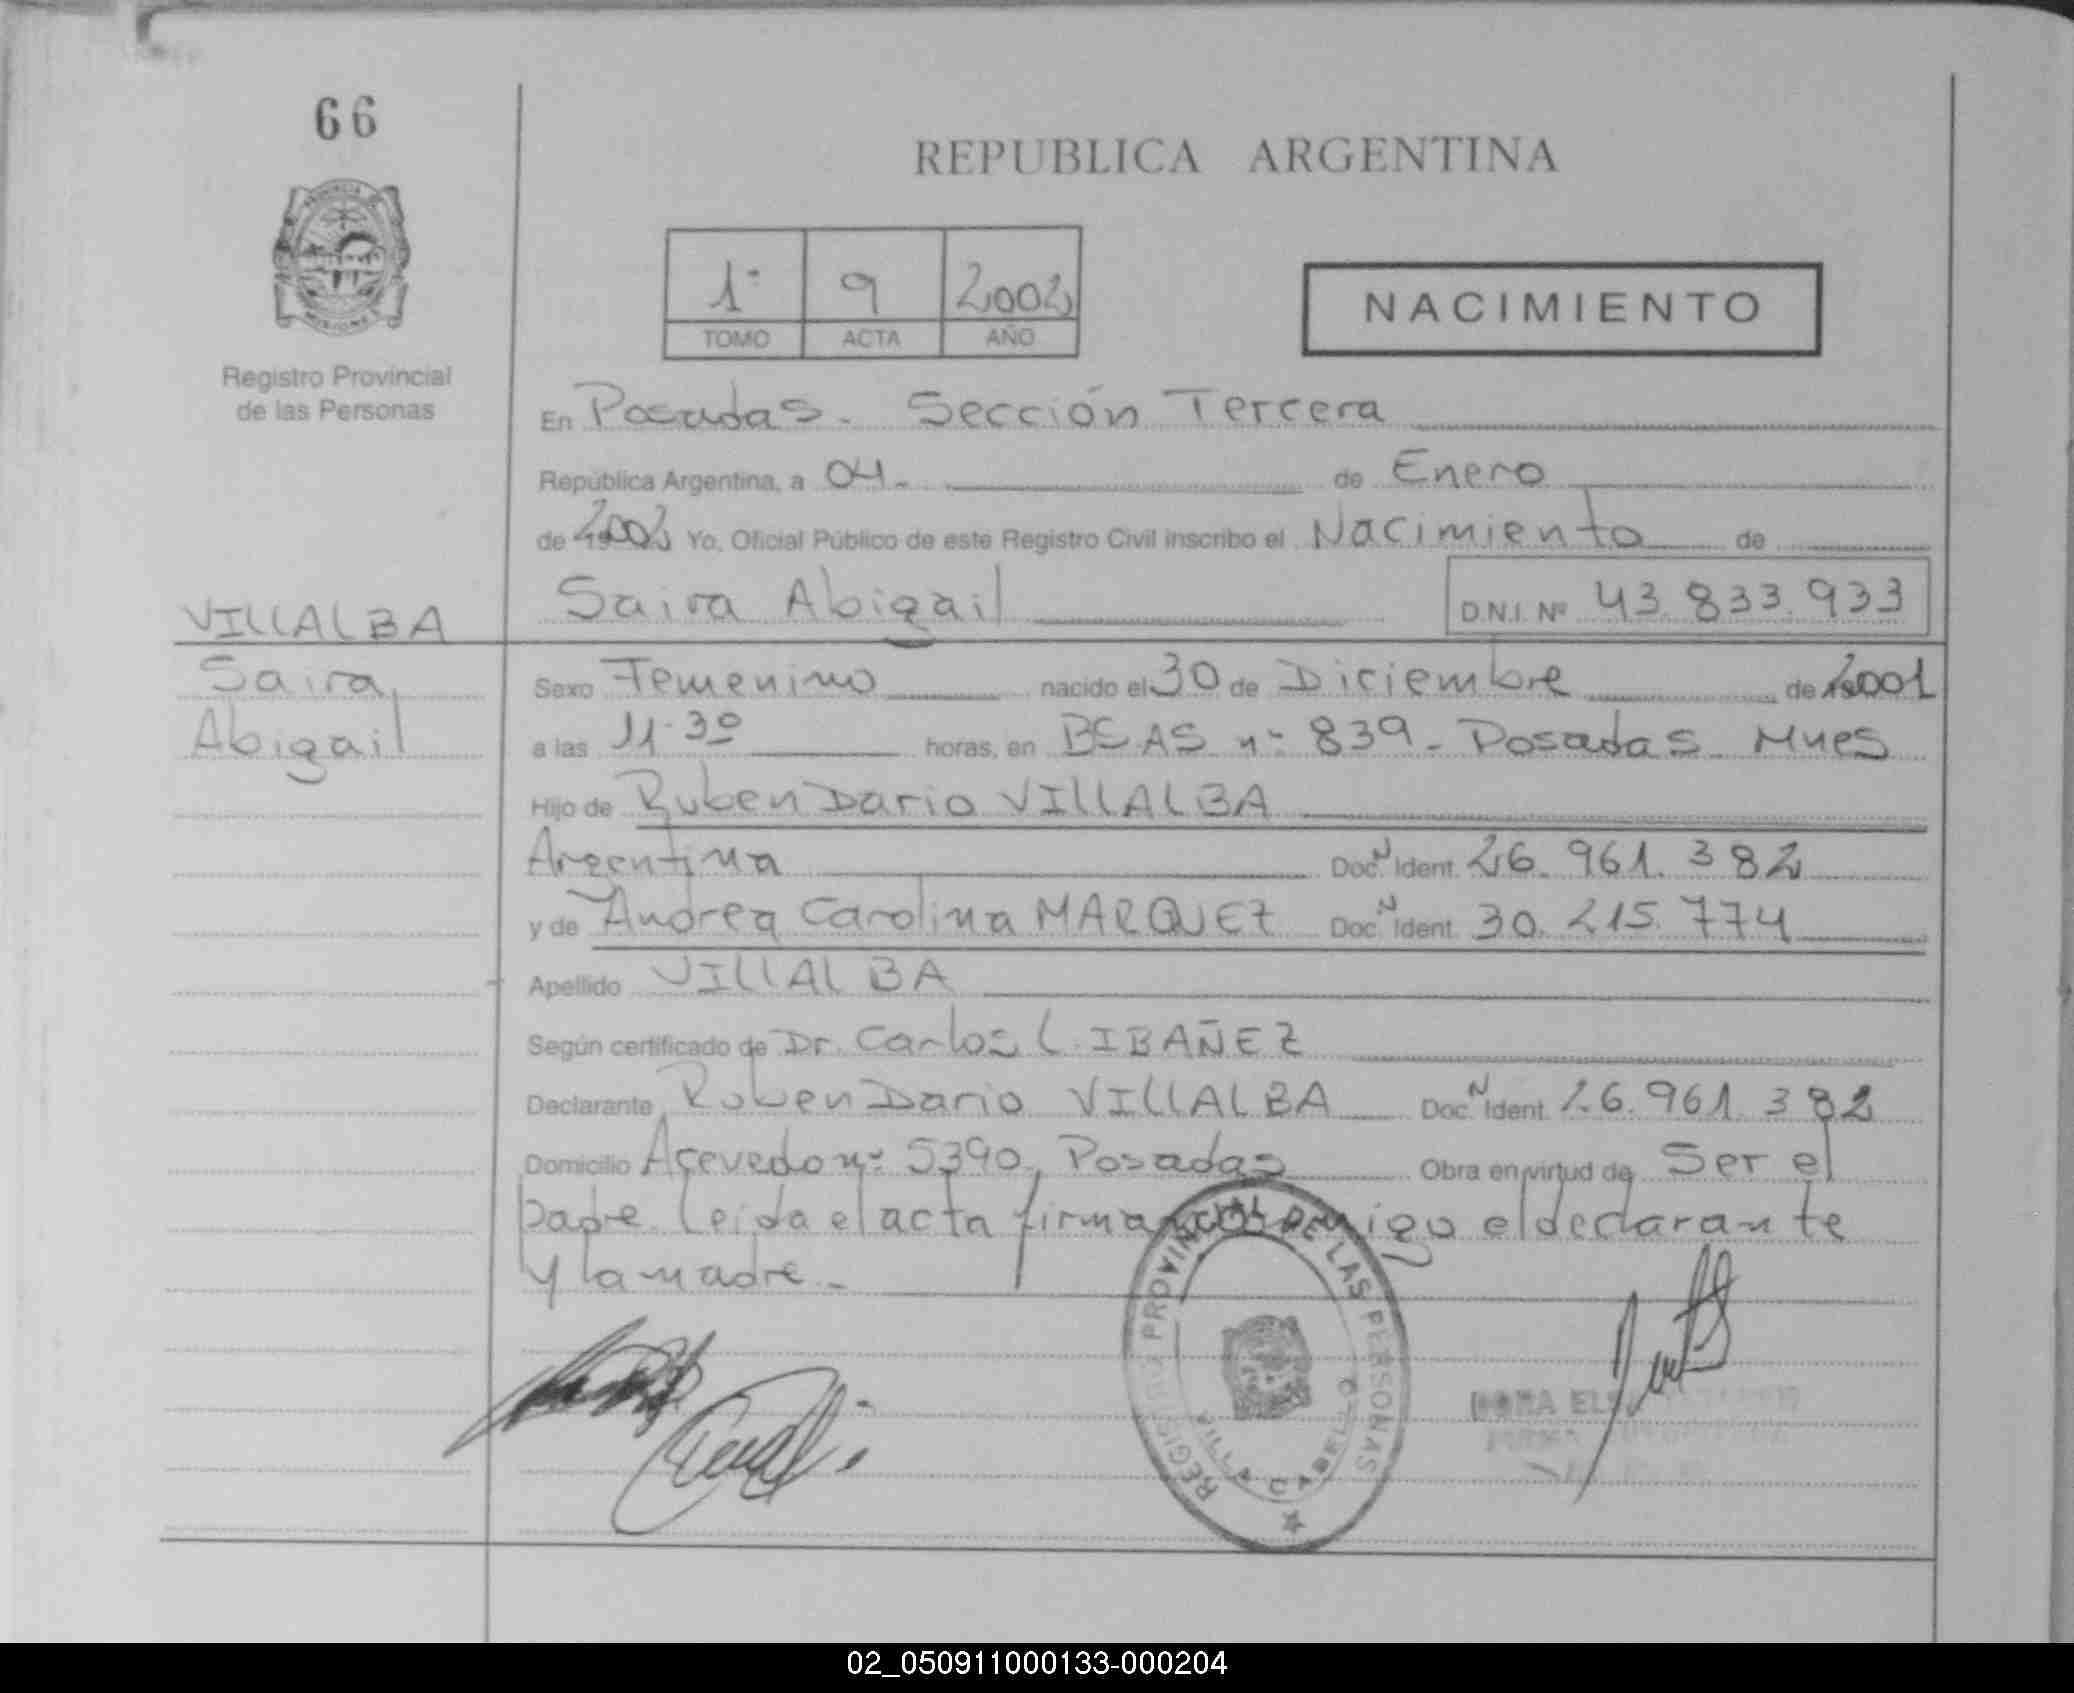 66
REPUBLICA ARGENTINA
PROVINCIA DE
MISIONES
1º 9 2002
TOMO ACTA AÑO
NACIMIENTO
Registro Provincial
de las Personas
En Posadas. Sección Tercera
República Argentina, a 04. de Enero
de 2002 Yo, Oficial Público de este Registro Civil inscribo el Nacimiento de
VILLALBA Saira Abigail D.N.I. Nº 43.833.933
Saira Sexo Femenino nacido el 30 de Diciembre de 2001
Abigail a las 11.30 horas, en BS.AS nº 839 - Posadas Mnes
Hijo de Ruben Dario VILLALBA
Argentina DocN Ident. 26.961.382
y de Andrea Carolina MARQUEZ DocN Ident. 30.215.774
Apellido VILLALBA
Según certificado de Dr. Carlos L. IBAÑEZ
Declarante Ruben Dario VILLALBA DocN Ident. 26.961.382
Domicilio Acevedo nº 5390, Posadas Obra en virtud de Ser el
padre. Leida el acta firma conmigo el declarante
y la madre.-
REGISTRO PROVINCIAL DE LAS PERSONAS
VILLA CABELLO
02_050911000133-000204